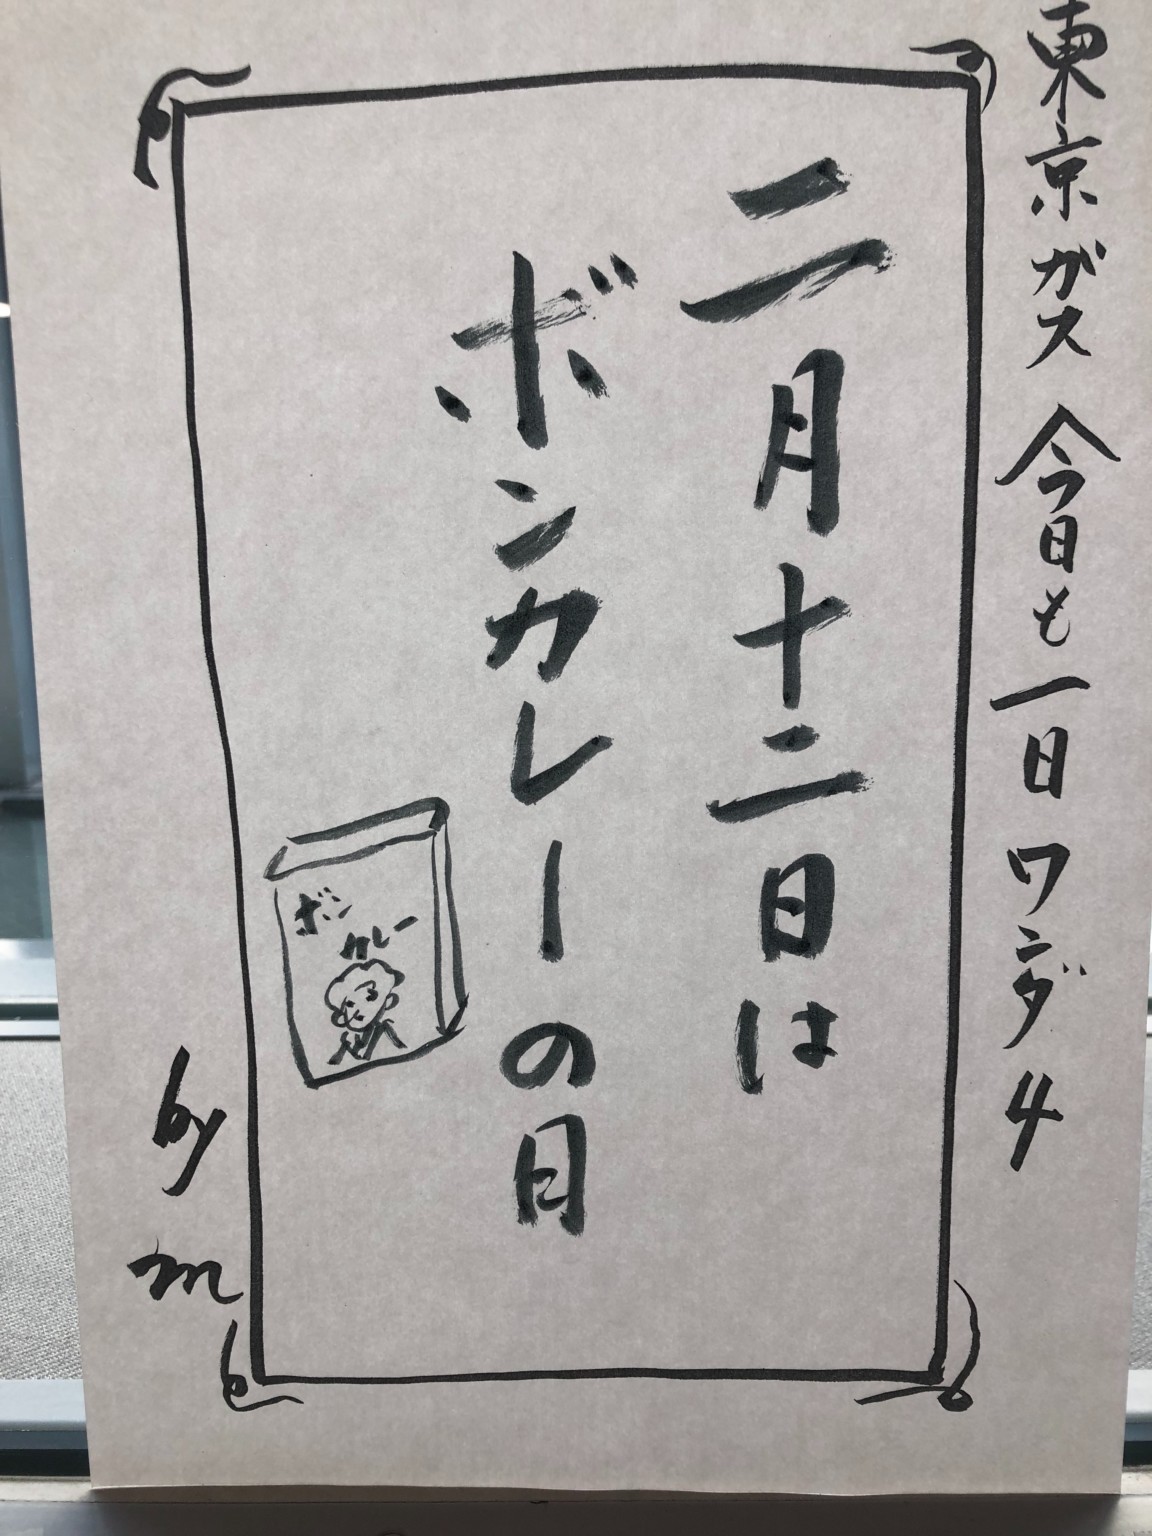 東京ガス 今日も一日ワンダ4
二月十二日は
ボンカレーの日
ボン
カレー
by m